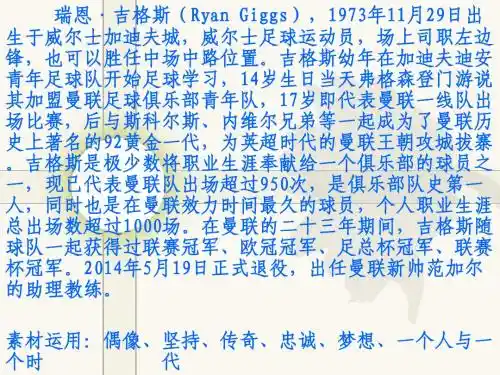 瑞恩·吉格斯（Ryan Giggs），1973年11月29日出
生于威尔士加迪夫城，威尔士足球运动员，场上司职左边
锋，也可以胜任中场中路位置。吉格斯幼年在加迪夫迪安
青年足球队开始足球学习，14岁生日当天弗格森登门游说
其加盟曼联足球俱乐部青年队，17岁即代表曼联一线队出
场比赛，后与斯科尔斯、内维尔兄弟等一起成为了曼联历
史上著名的92黄金一代，为英超时代的曼联王朝攻城拔寨
。吉格斯是极少数将职业生涯奉献给一个俱乐部的球员之
一，现已代表曼联队出场超过950次，是俱乐部队史第一
人，同时也是在曼联效力时间最久的球员，个人职业生涯
总出场数超过1000场。在曼联的二十三年期间，吉格斯随
球队一起获得过联赛冠军、欧冠冠军、足总杯冠军、联赛
杯冠军。2014年5月19日正式退役，出任曼联新帅范加尔
的助理教练。
素材运用：偶像、坚持、传奇、忠诚、梦想、一个人与一
个时 代